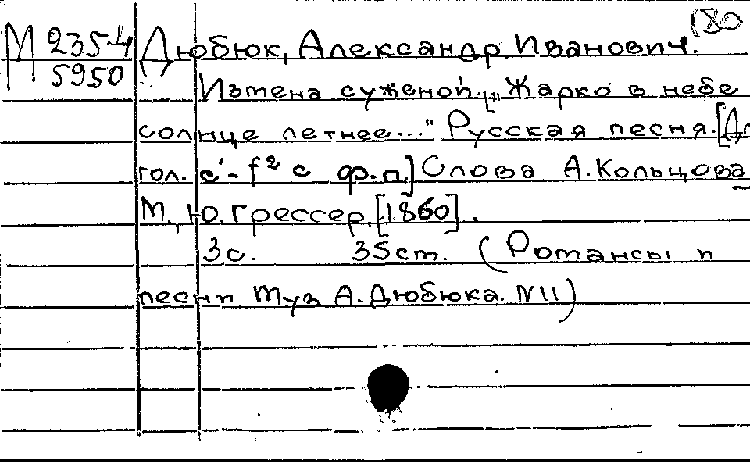 180
М 235-4 Дюбюк, Александр Иванович.
5950
Измена суженой. "Жарко в небе
солнце летнее..." Русская песня. [Дл
гол. c¹-f² с ф.п.] Слова А. Кольцова
М., Ю. Грессер, [1860].
3 с. 35 ст. (Романсы и
песни Муз А. Дюбюка. N11)